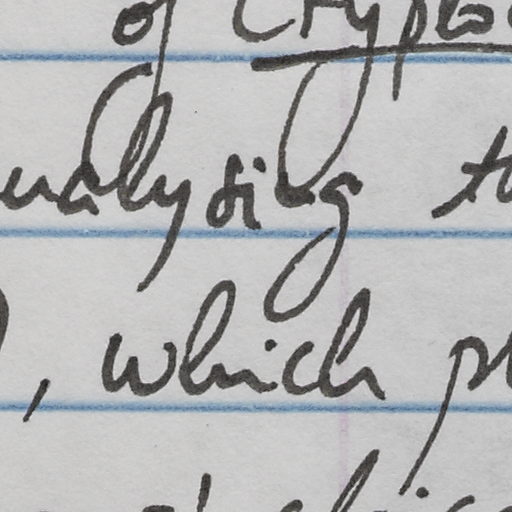 of Crypto
analysing to
, which pl